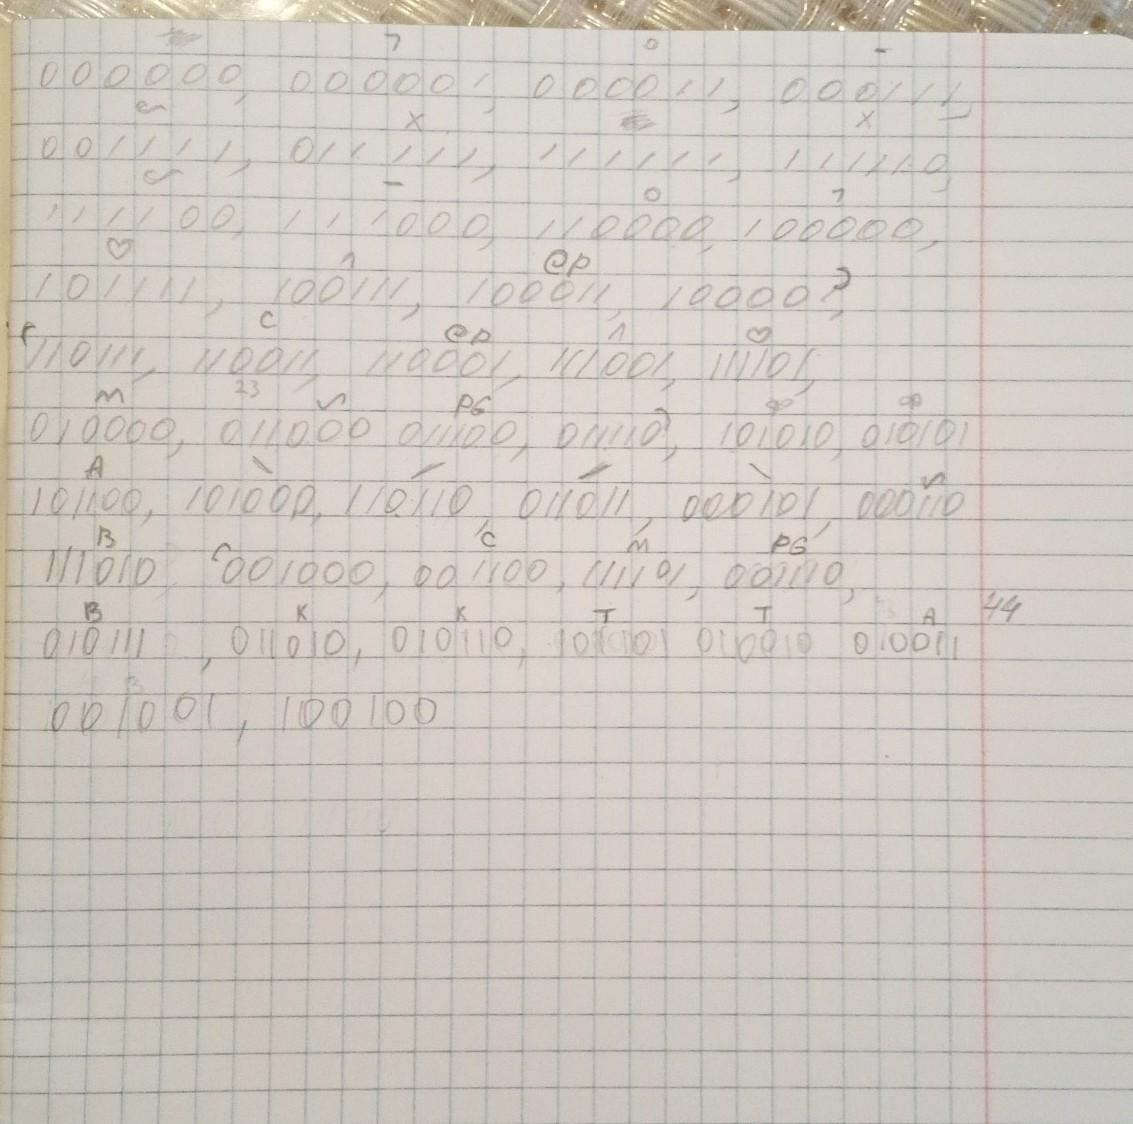 7 0 -
000000, 000001, 000011, 000111,
x x
001111, 011111, 111111, 111110,
- 0 7
111100, 111000, 110000, 100000,
♡ ^ @p
101111, 100111, 100011, 10000?,
c @p ^ ♡
110111, 110011, 110001, 111001, 111101,
M 23 PG ∞ ∞
010000, 011000 011100, 011110, 101010, 010101
A \ / / \
101100, 101000, 110110, 011011, 000101, 000110
B C M PG
111010 001000, 001100, 111101, 001110,
B K K T T A 44
010111, 011010, 010110, 101101 010010 010011
001001, 100100